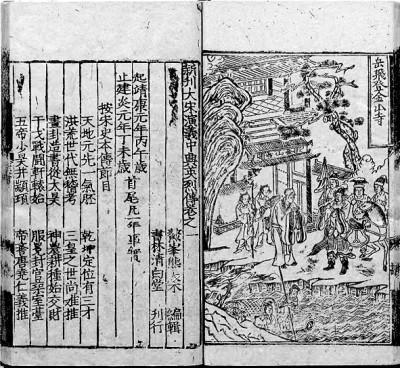 岳飛登金山寺
新刊大宋演義中興英烈傳卷之一
鰲峯熊大木 編輯
書林清白堂 刊行
起靖康元年丙午歲
止建炎元年丁未歲 首尾凡一年事實
按宋史本傳節目
天地元先一氣胚 乾坤定位有三才
洪荒世代無稽考 三皇之世尚难推
畫卦造書從太昊 神農耕種始交財
干戈戰鬪軒轅始 服冕封官室臺
五帝少昊并顓頊 帝嚳唐堯仁義推